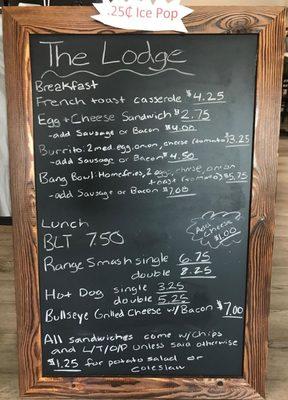 .25¢ Ice Pop
The Lodge
Breakfast
French toast casserole $4.25
Egg + Cheese Sandwich $2.75
-add Sausage or Bacon $4.00
Burrito: 2 med. egg, onion, cheese (tomato) $3.25
-add Sausage or Bacon $4.50
Bang Bowl: Homefries, 2 egg, cheese, onion
toast (tomato) $5.75
-add Sausage or Bacon $7.00
Lunch
BLT 7.50
Add
Cheese
$1.00
Range Smash single 6.75
double 8.25
Hot Dog single 3.25
double 5.25
Bullseye Grilled Cheese w/Bacon $7.00
All sandwiches come w/chips
and L/T/O/P unless said otherwise
$1.25 for potato salad or
coleslaw